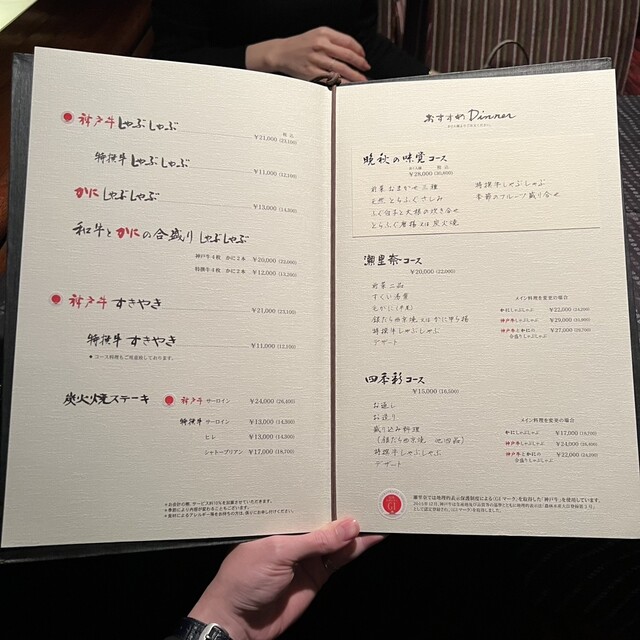 神戸牛 しゃぶしゃぶ
税込
¥21,000 (23,100)
特撰牛 しゃぶしゃぶ
¥11,000 (12,100)
かに しゃぶしゃぶ
¥13,000 (14,300)
和牛とかにの合盛り しゃぶしゃぶ
神戸牛4枚 かに2本 ¥20,000 (22,000)
特撰牛4枚 かに2本 ¥12,000 (13,200)
神戸牛 すきやき
¥21,000 (23,100)
特撰牛 すきやき
¥11,000 (12,100)
● コース料理もご用意致しております。
炭火焼ステーキ 神戸牛 サーロイン ¥24,000 (26,400)
特撰牛 サーロイン ¥13,000 (14,300)
ヒレ ¥13,000 (14,300)
シャトーブリアン ¥17,000 (18,700)
おすすめ Dinner
晩秋の味覚コース
税込
¥28,000 (30,800)
前菜おまかせ三種
天然とらふぐさしみ
ふぐ白子と大根の炊き合せ
とらふぐ唐揚又は炭火焼
特撰牛しゃぶしゃぶ
季節のフルーツ盛り合せ
瀬里奈コース
¥20,000 (22,000)
前菜二品
すくい湯葉
特撰牛しゃぶしゃぶ
デザート
メイン料理を変更の場合
かにしゃぶしゃぶ ¥22,000 (24,200)
神戸牛しゃぶしゃぶ ¥29,000 (31,900)
神戸牛とかにの
合盛りしゃぶしゃぶ ¥27,000 (29,700)
四季彩コース
¥15,000 (16,500)
お通し
お造り
盛り込み料理
特撰牛しゃぶしゃぶ
デザート
メイン料理を変更の場合
かにしゃぶしゃぶ ¥17,000 (18,700)
神戸牛しゃぶしゃぶ ¥24,000 (26,400)
神戸牛とかにの
合盛りしゃぶしゃぶ ¥22,000 (24,200)
GI